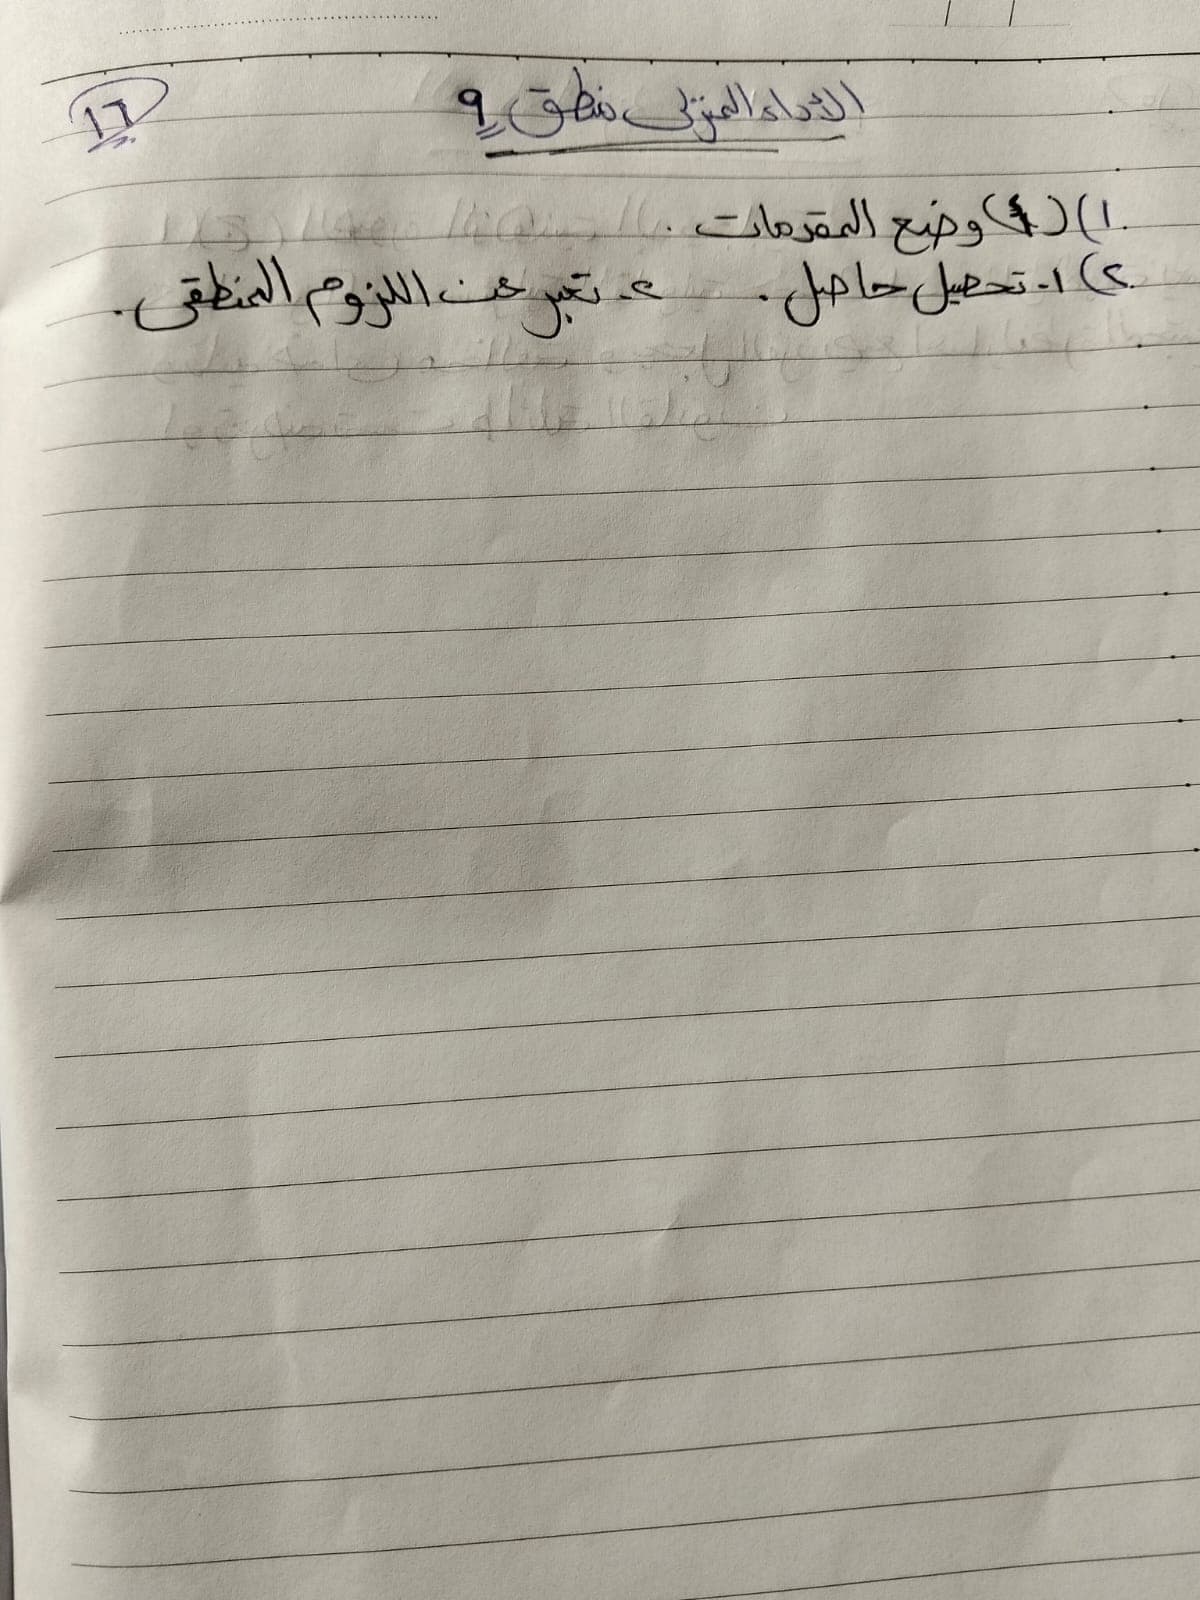 الأداء المنزلى منطق ٩
١٦
١) (أ) وضع المقدمات .
٢) ١- تحصيل حاصل . ٢- تعبر عن اللزوم المنطقى .